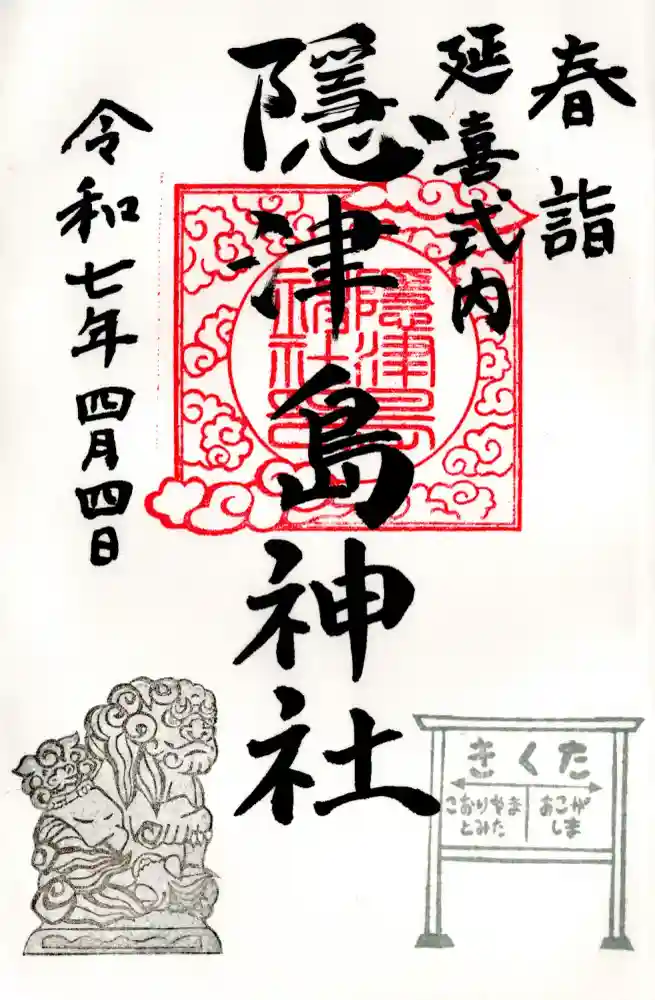 春詣
延喜式内
隠津島神社
隠津島
神社印
令和七年四月四日
きくた
こおりやま
とみた
おこが
しま